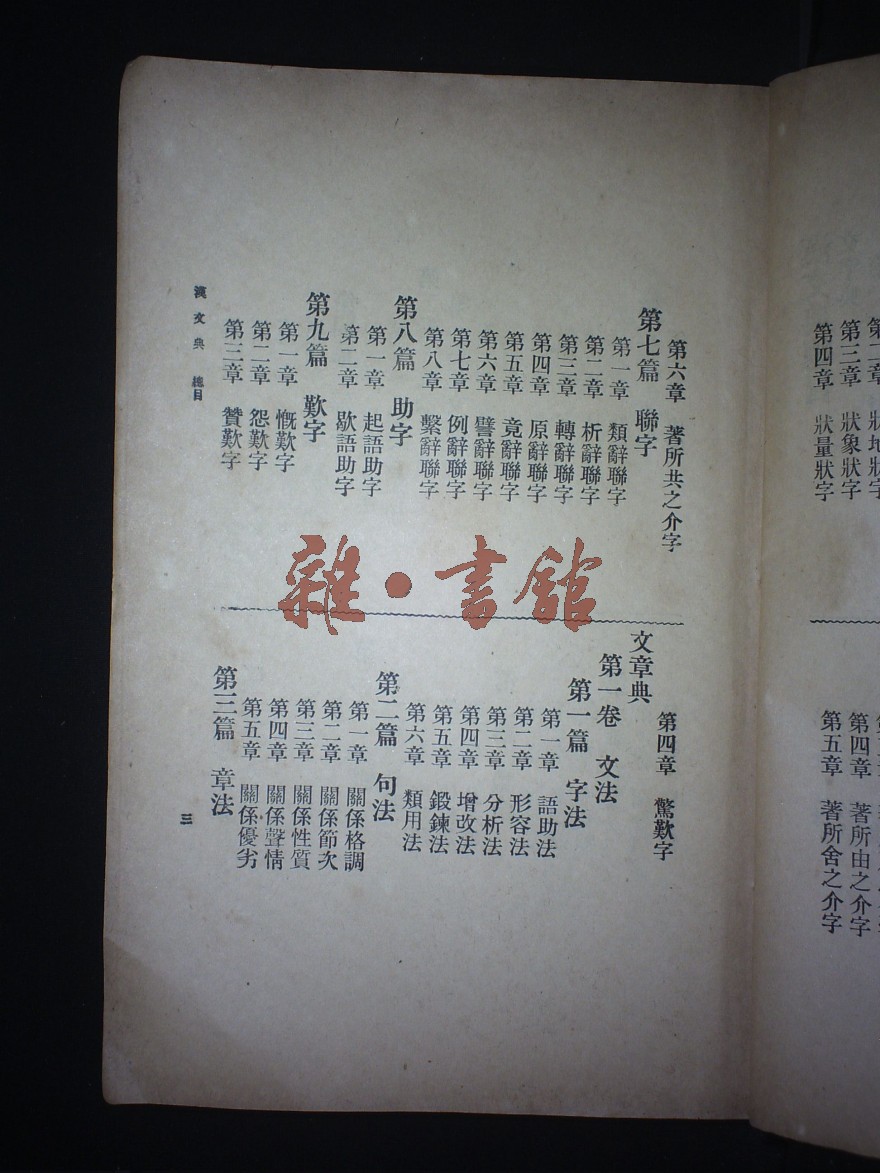 第三章 狀象狀字
第四章 狀量狀字
第四章 著所由之介字
第五章 著所舍之介字
第六章 著所共之介字
第七篇 聯字
第一章 類辭聯字
第二章 析辭聯字
第三章 轉辭聯字
第四章 原辭聯字
第五章 竟辭聯字
第六章 譬辭聯字
第七章 例辭聯字
第八章 繫辭聯字
第八篇 助字
第一章 起語助字
第二章 歇語助字
第九篇 歎字
第一章 慨歎字
第二章 怨歎字
第三章 贊歎字
第四章 驚歎字
文章典
第一卷 文法
第一篇 字法
第一章 語助法
第二章 形容法
第三章 分析法
第四章 增改法
第五章 鍛鍊法
第六章 類用法
第二篇 句法
第一章 關係格調
第二章 關係節次
第三章 關係性質
第四章 關係聲情
第五章 關係優劣
第三篇 章法
漢文典 總目
三
雜·書館